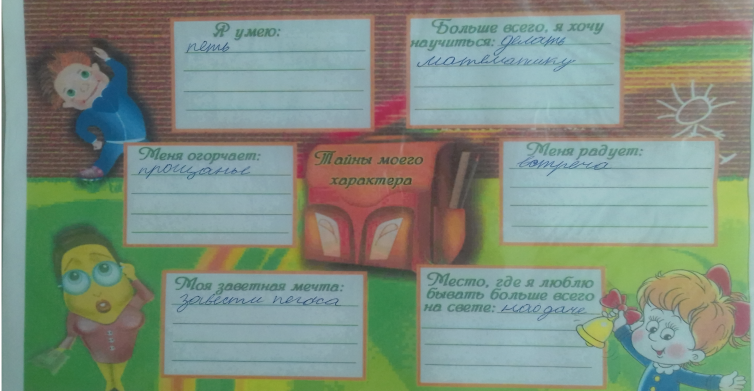 Я умею:
петь
Больше всего, я хочу
научиться: делать
математику
Меня огорчает:
прощанье
Тайны моего
характера
Меня радует:
встреча
Моя заветная мечта:
завести пегаса
Место, где я люблю
бывать больше всего
на свете: на даче